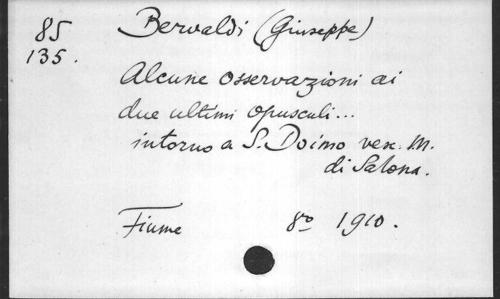 85
135.
Bervaldi (Giuseppe)
Alcune osservazioni ai
due ultimi opusculi...
intorno a S. Doimo vesc. M.
di Salona.
Fiume 8º 1910.